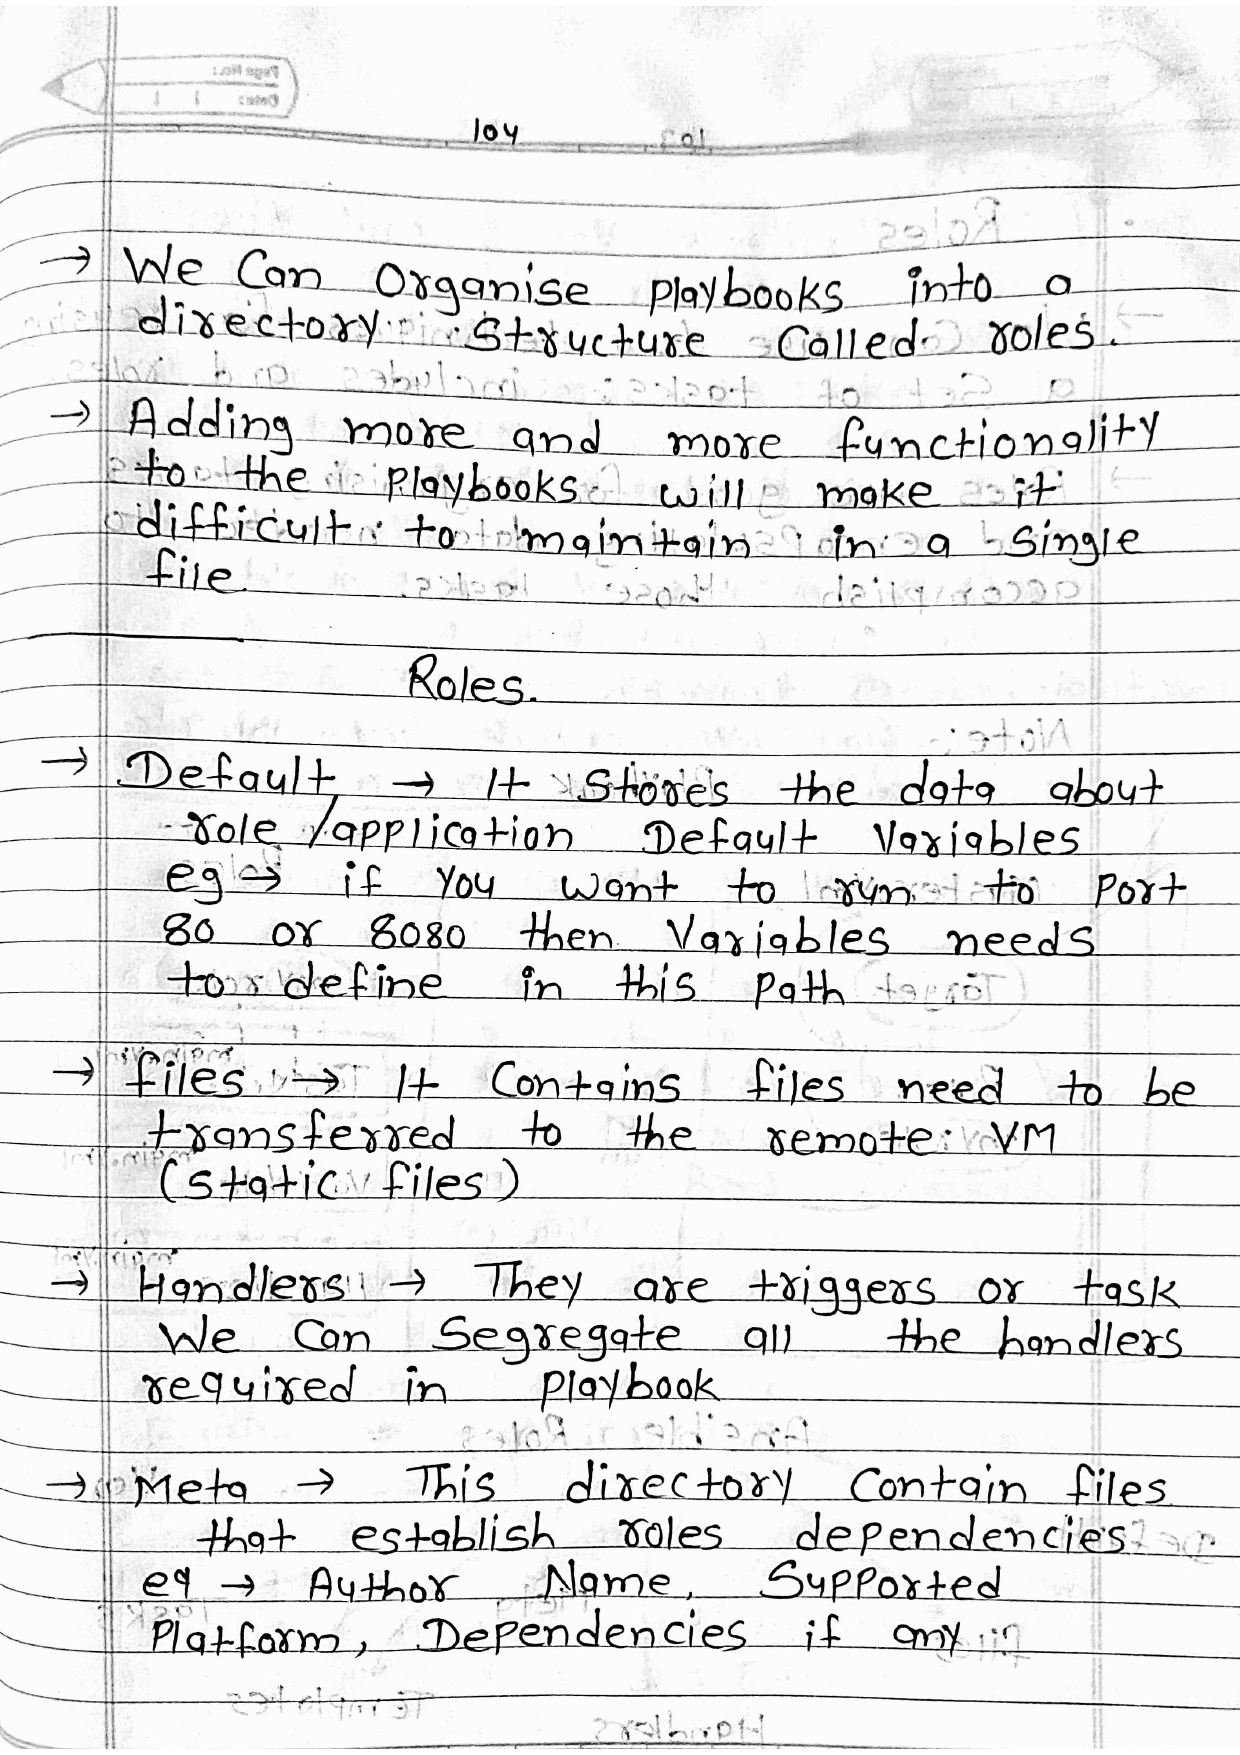 104
→ We Can Organise playbooks into a
directory Structure Called roles.
→ Adding more and more functionality
to the playbooks will make it
difficult to maintain in a single
file.
Roles.
→ Default → It Stores the data about
role/application Default Variables
eg → if you want to run to Port
80 or 8080 then Variables needs
to define in this path
→ files → It Contains files need to be
transferred to the remote VM
(static files)
→ Handlers → They are triggers or task
We Can Segregate all the handlers
required in playbook
→ Meta → This directory Contain files
that establish roles dependencies.
eg → Author Name, Supported
Platform, Dependencies if any